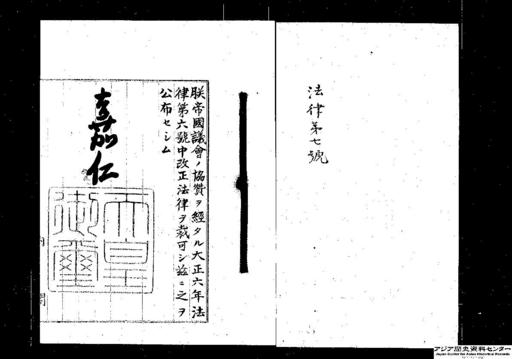 法律第七號
朕帝國議會ノ協贊ヲ經タル大正六年法
律第六號中改正法律ヲ裁可シ茲ニ之ヲ
公布セシム
嘉仁
天皇
御璽
内閣
アジア歴史資料センター
Japan Center for Asian Historical Records